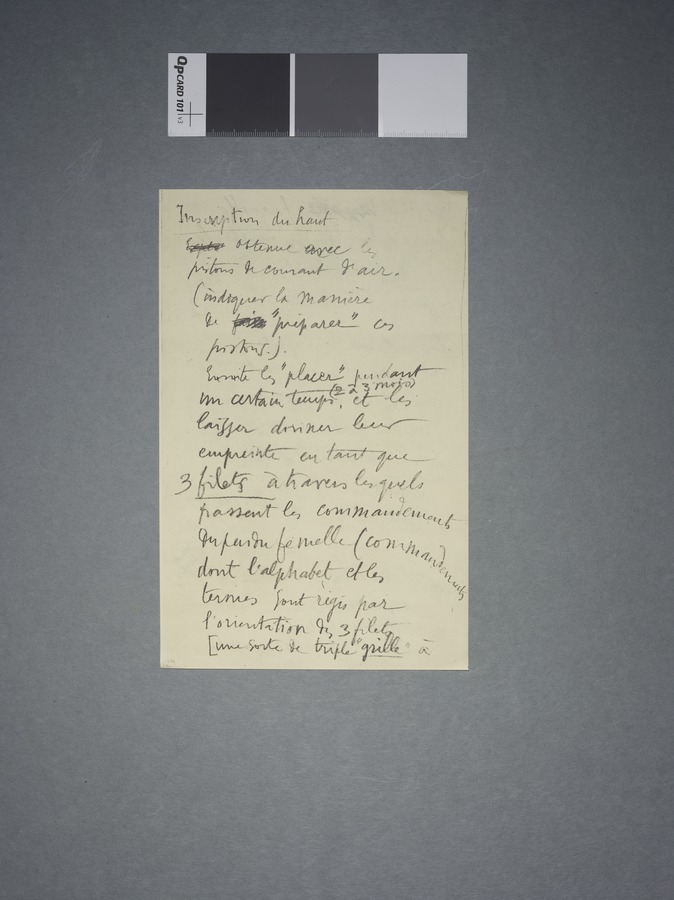 QPCARD 101 v3
Inscription du haut
obtenue avec les
pistons de courant d'air.
(indiquer la manière
de "préparer" ces
pistons.).
Ensuite les "placer" pendant
(2 à 3 mois)
un certain temps, et les
laisser donner leur
empreinte en tant que
3 filets à travers lesquels
passent les commandements
du pendu femelle (commandements
dont l'alphabet et les
termes sont régis par
l'orientation des 3 filets
[une sorte de triple "grille" à